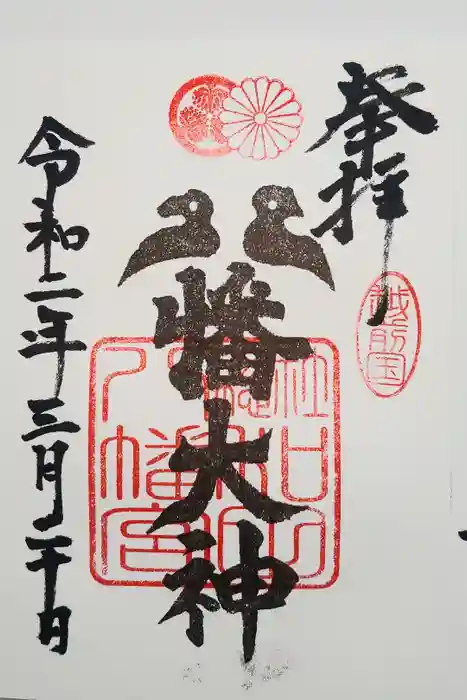 奉拝
越前国
八幡大神
令和二年三月二十日